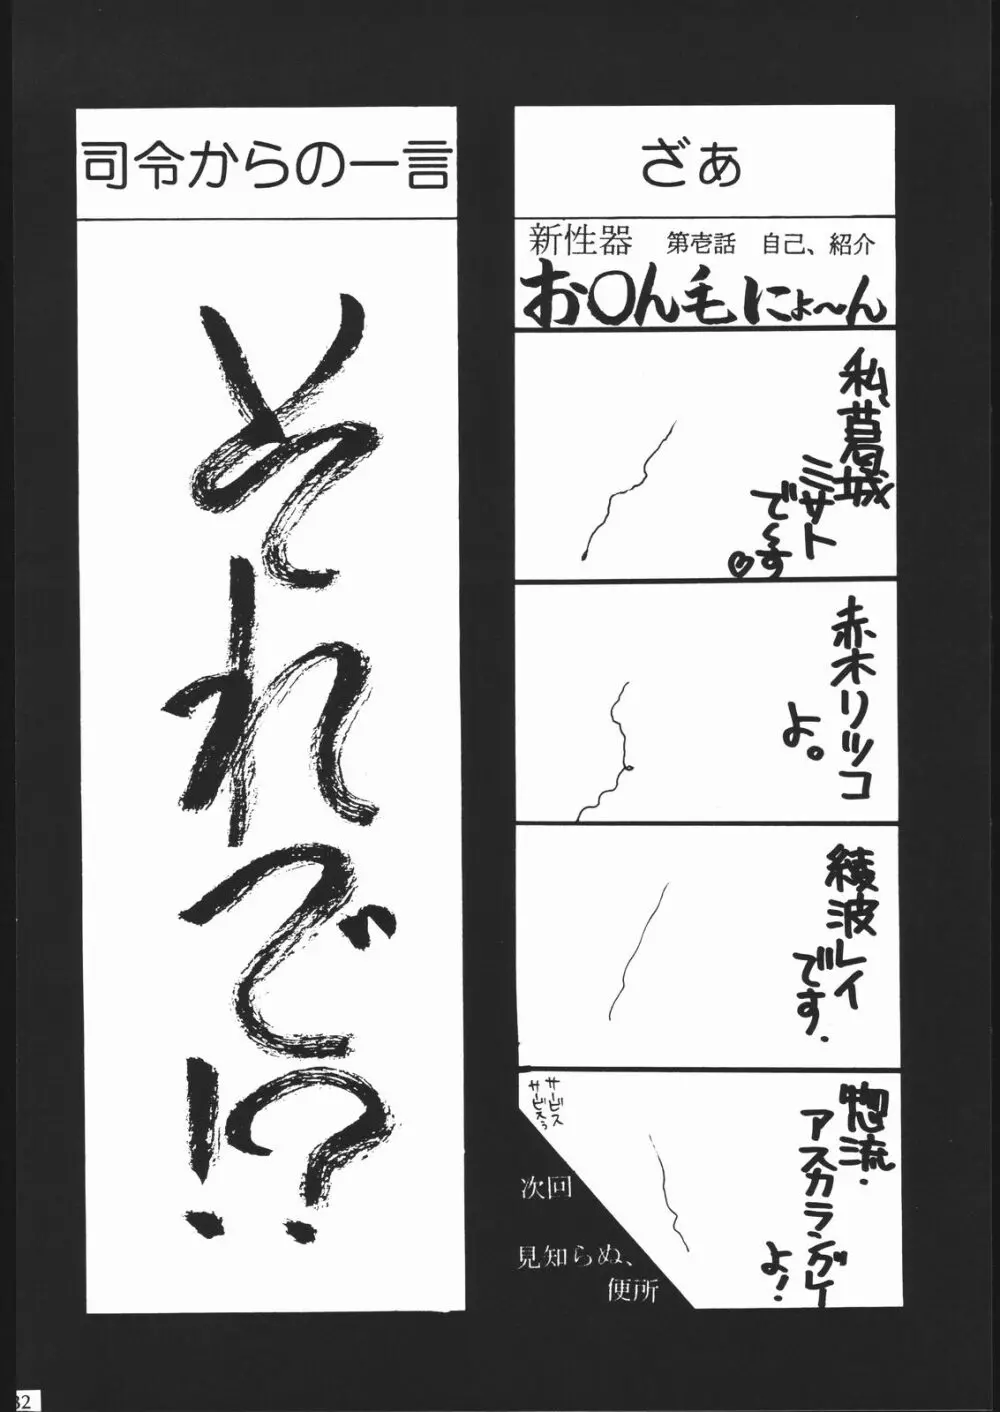 ざぁ
新性器　第壱話　自己、紹介
お〇ん毛にょ〜ん
私葛城
ミサト
で〜す♡
赤木リツコ
よ。
綾波レイ
です.
惣流・
アスカラングレー
よ!
サービス
サービスぅ
次回
見知らぬ、
便所
司令からの一言
それで!?
32